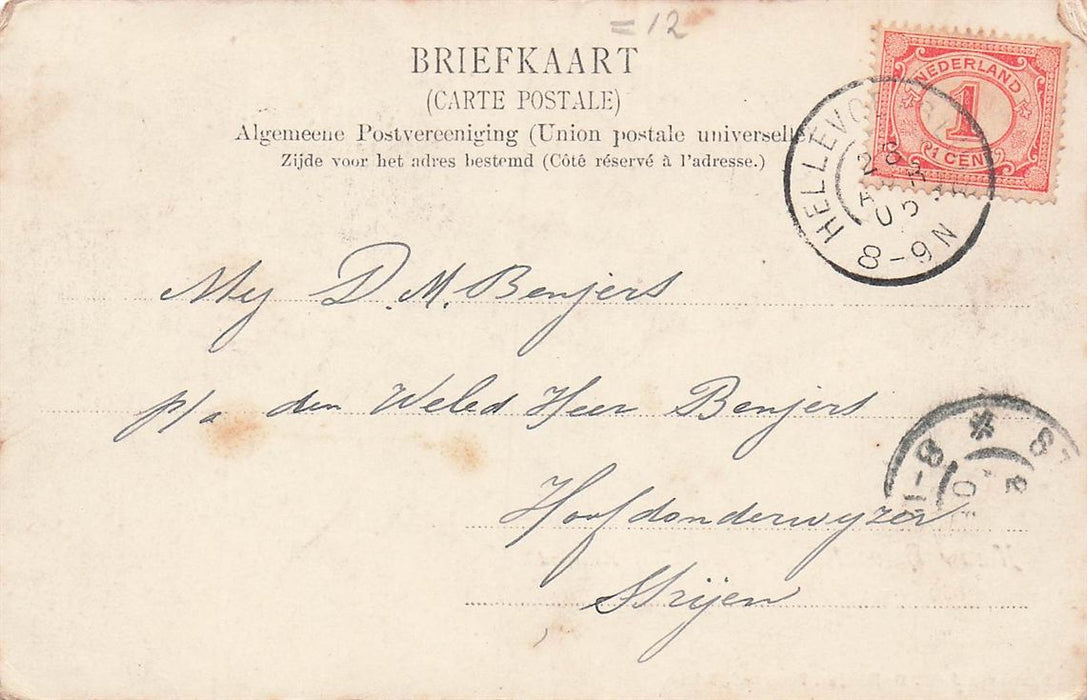 =12
BRIEFKAART
(CARTE POSTALE)
Algemeene Postvereeniging (Union postale universelle)
Zijde voor het adres bestemd (Côté réservé à l'adresse.)
NEDERLAND
1
1 CENT
28
05
8-9N
Mej D. M. Benjers
p/a den Weled Heer Benjers
Hoofdonderwyzer
Strijen